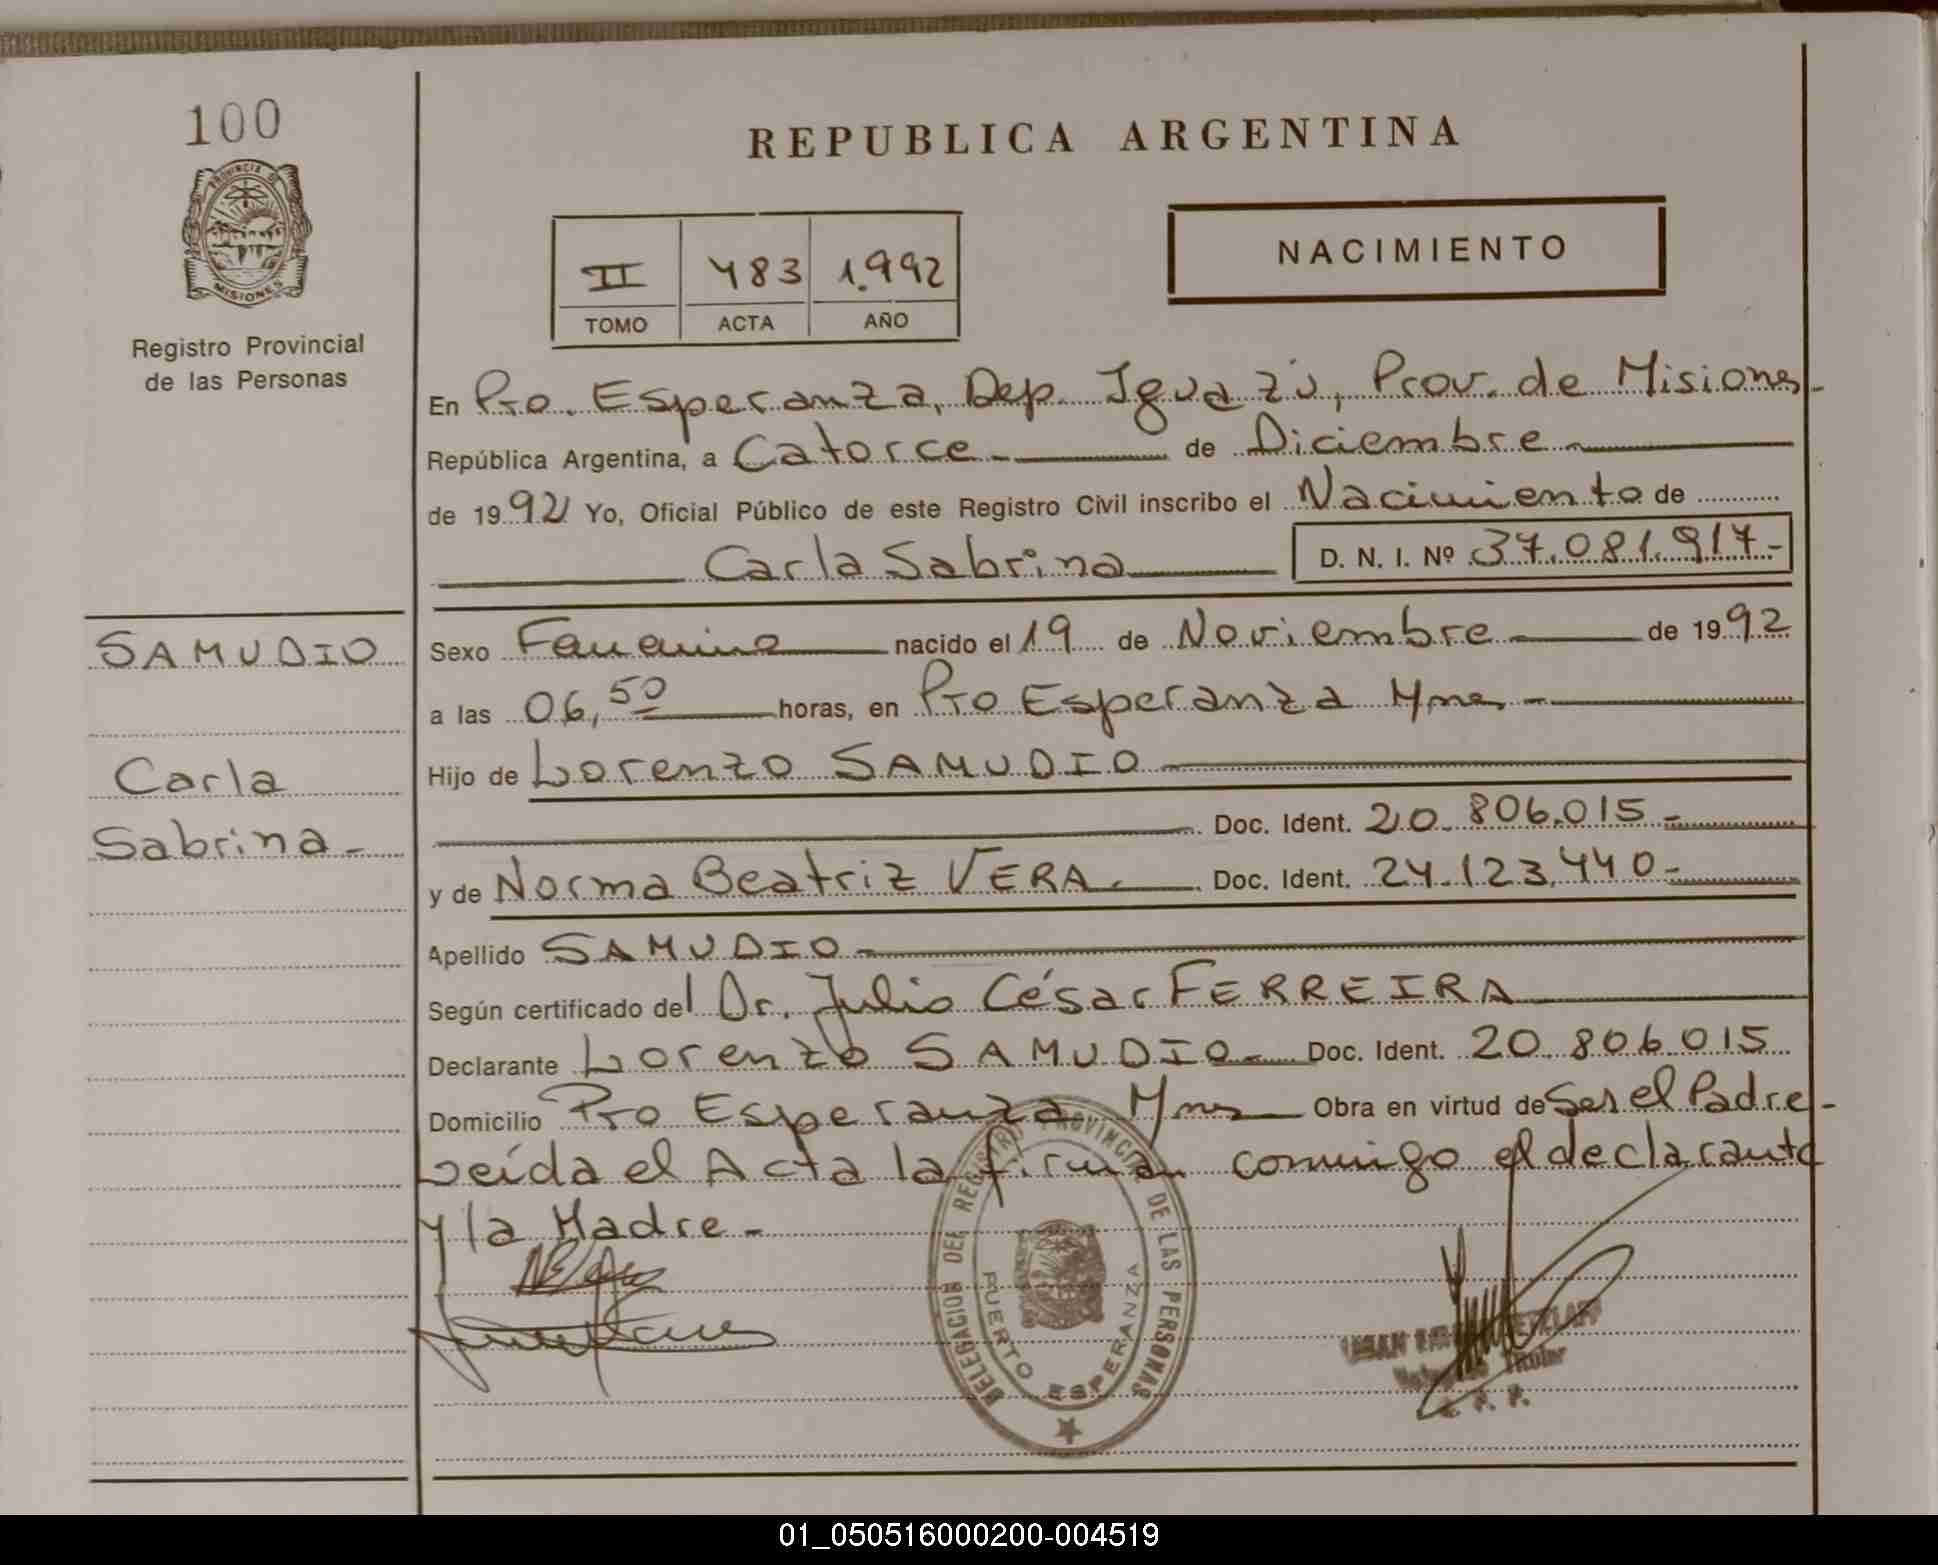 100
PROVINCIA DE
MISIONES
Registro Provincial
de las Personas
REPUBLICA ARGENTINA
II 483 1.992
TOMO ACTA AÑO
NACIMIENTO
En Pto. Esperanza, Dep. Iguazú, Prov. de Misiones-
República Argentina, a Catorce - de Diciembre -
de 1992 Yo, Oficial Público de este Registro Civil inscribo el Nacimiento de
Carla Sabrina D. N. I. Nº 37.081.917-
SAMUDIO
Carla
Sabrina -
Sexo Femenino nacido el 19 de Noviembre de 1992
a las 06,50 horas, en Pto Esperanza Mnes -
Hijo de Lorenzo SAMUDIO
Doc. Ident. 20.806.015 -
y de Norma Beatriz VERA. Doc. Ident. 24.123.440-
Apellido SAMUDIO -
Según certificado del Dr. Julio César FERREIRA
Declarante Lorenzo SAMUDIO- Doc. Ident. 20.806.015
Domicilio Pto Esperanza Mnes Obra en virtud de Ser el Padre-
Leída el Acta la firman conmigo el declarante
y la Madre -
DELEGACION DEL REGISTRO PROVINCIAL DE LAS PERSONAS
PUERTO ESPERANZA
Titular
01_050516000200-004519